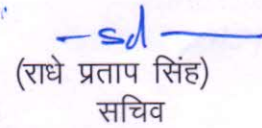 sd
(राधे प्रताप सिंह)
सचिव